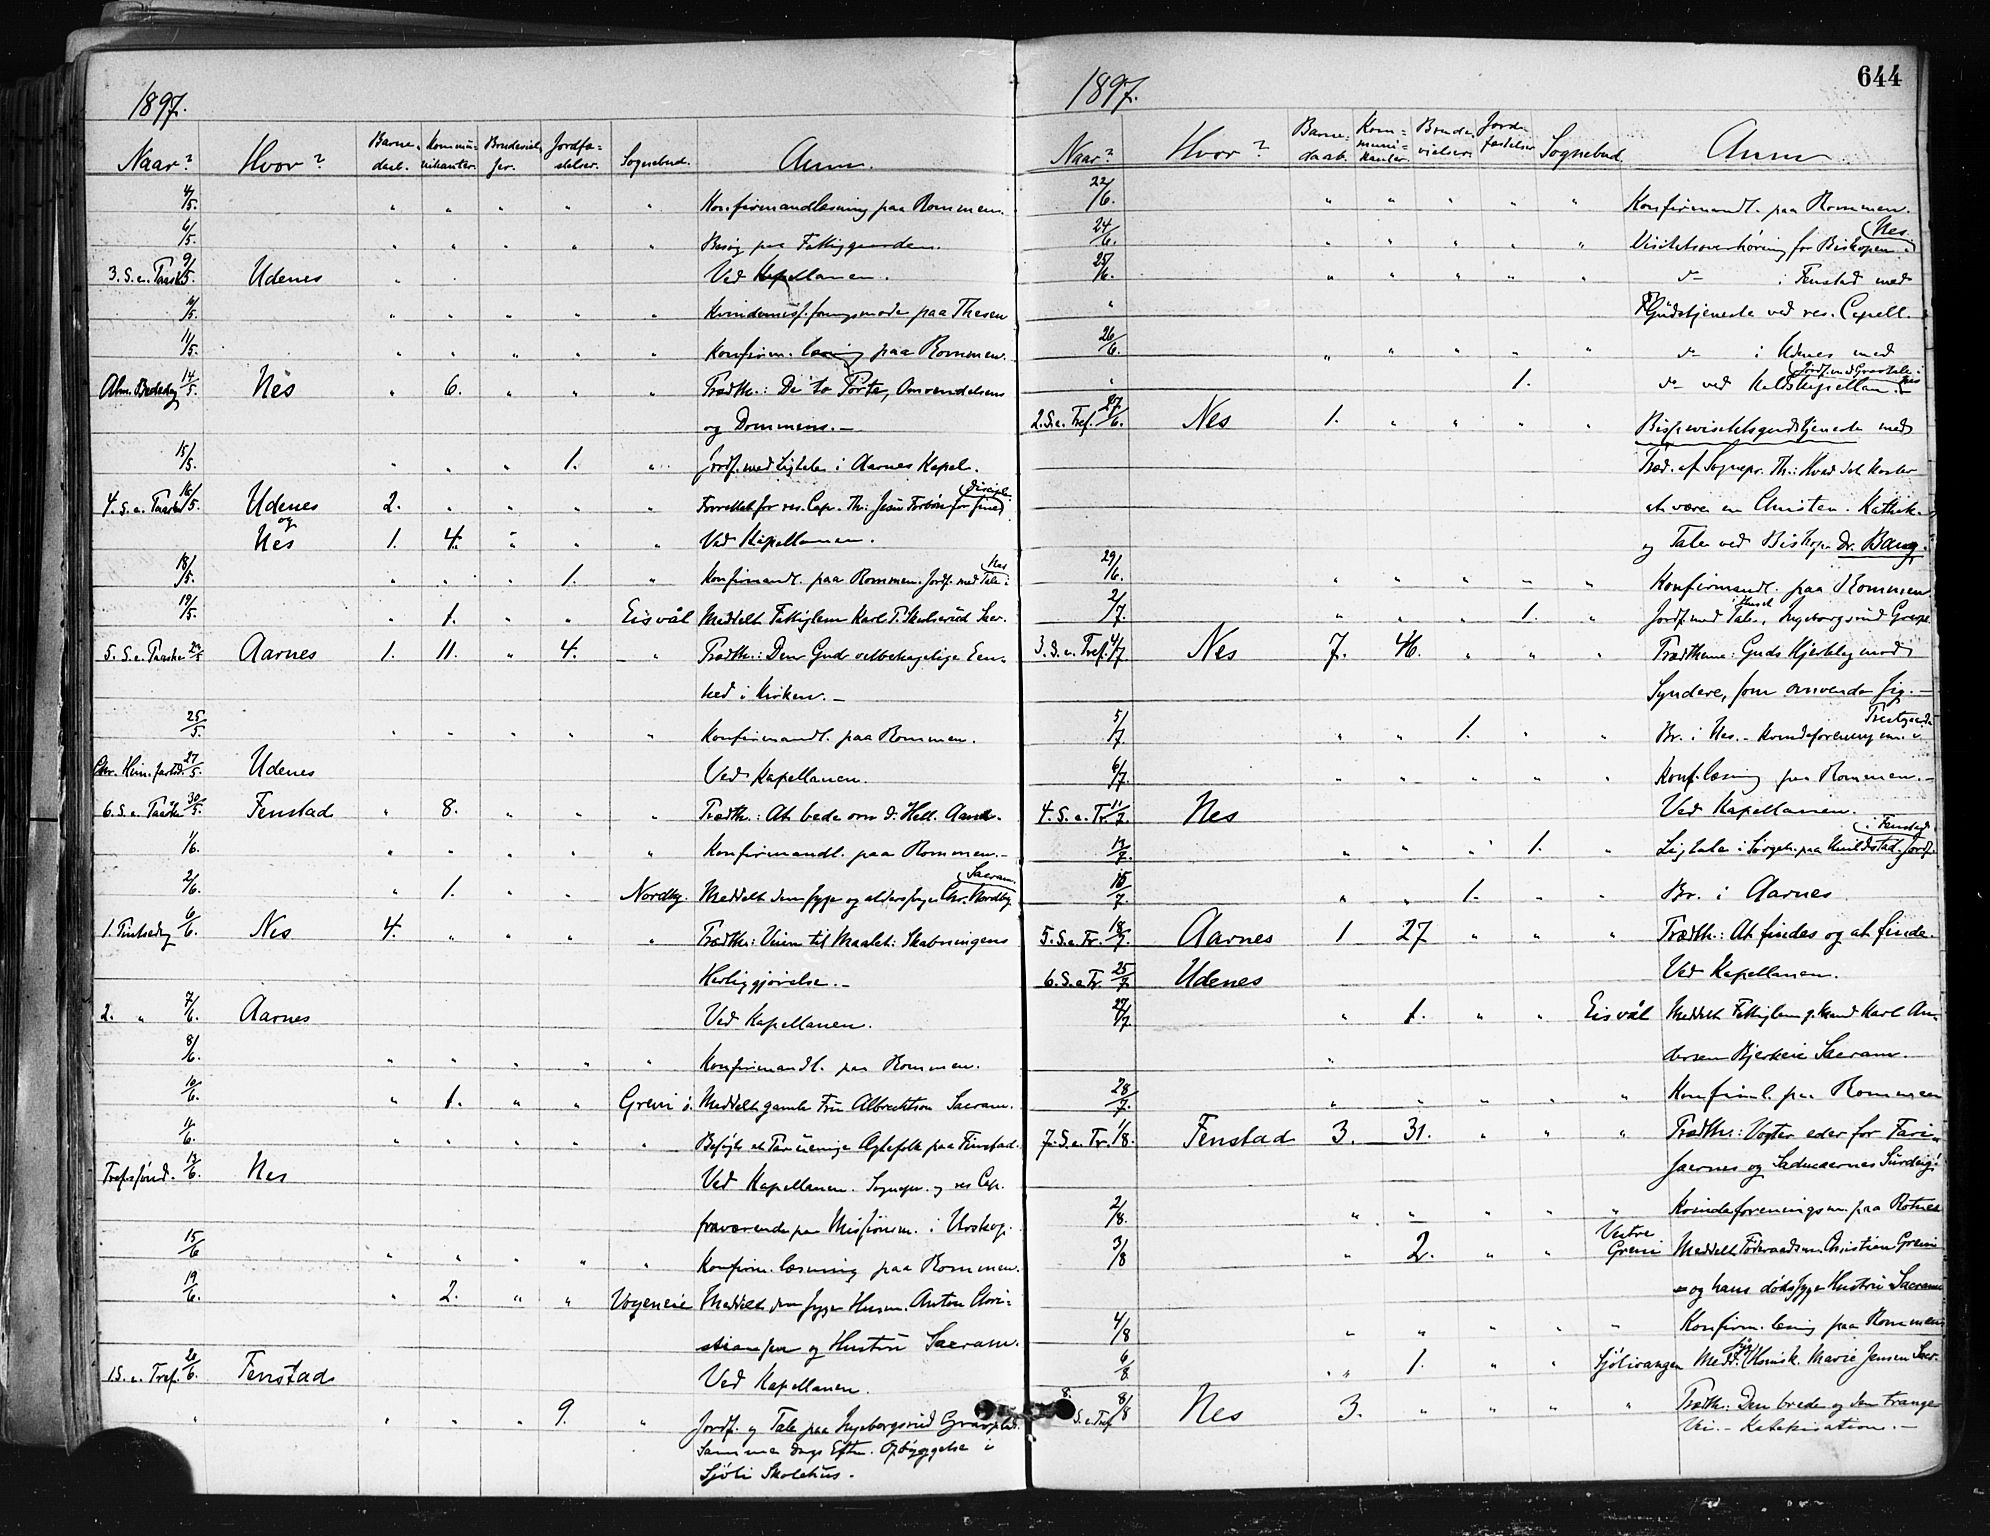 1897.
Naar? Hvor? Barne- Kommu- Brudeviel- Jordfæ- Sognebud. Anm.
daab. nikanter. ser. stelser.
4/5. " " " " " Konfirmandlæsning paa Rommen.
6/5. " " " " " Besøg paa Fattiggaarden.
3. S. e. Paaske 9/5. Udenes " Ved Kapellanen.
" " " " " paa Thesen
11/5. " " " " " Konfirm. læsning paa Rommen.
Alm. Bededag 14/5. Nes " 6. " " " Trædth.: De to Porte, Omvendelsens
og Dommens. —
15/5. " " " 1. " Jordf. med Ligtale i Aarnes Kapel.
4. S. e. Paaske 16/5. Udenes 2. " " " " Forrettet for res. Cap. Th: Jesu Forbøn for sine Discipl.
og
Nes 1. 4. " " " Ved Kapellanen.
18/5. " " " 1. " Konfirmandl. paa Rommen. Jordf. med Tale i Nes
19/5. " 1. " " Eisvål Meddelt Fattiglem Karl P. Skulserud Sacr.
5. S. e. Paaske 23/5 Aarnes 1. 11. " 4. " Trædth.: Den Gud velbehagelige Een-
hed i Kirken. —
25/5. " " " " " Konfirmandl. paa Rommen.
Chr. Him. fartsd. 27/5. Udenes Ved Kapellanen.
6. S. e. Paaske 30/5. Fenstad " 8. " " " Trædth.: At bede om d. Hell. Aand.
1/6. " " " " " Konfirmandl. paa Rommen. —
2/6. " 1. " " Nordby. Meddelt den syge og alderssvage Chr. Nordby Sacram.
1. Pintsedag 6/6. Nes 4. " " " " Trædth: Veien til Maalet: Skabningens
Herliggjørelse. —
2. " 7/6. Aarnes Ved Kapellanen.
8/6. " " " " " Konfirmandl. paa Rommen.
10/6. " 1. " " Greni ø. Meddelt gamle Fru Albrechtson Sacram.
" " " " " Besøgt et Par uenige Ægtefolk paa Finstad.
Trefs.sønd. 13/6. Nes Ved Kapellanen. Sognepr. og res Cap.
fraværende paa Missionsm. i Urskog.
15/6 " " " " " Konfirm. læsning paa Rommen.
19/6. " 2. " " Vogeneie Meddelt den syge Husm. Anton Chri-
stiansen og Hustru Sacram.
1 S. e. Tref. 20/6. Fenstad Ved Kapellanen.
" " " " 9. " Jordf. og Tale paa Ingeborgsrud Gravplds.
Samme Dags Eftm. Opbyggelse i
Sjøli Skolehus.
1897.
644
Naar? Hvor? Barne- Kom- Brude- Jords- Sognebud Anm
daab. muni- vielser fæstelser
kanter.
22/6. " " " " " Konfirmandl. paa Rommen.
24/6. " " " " " Visitatsoverhøring for Biskopen i Nes.
25/6. " " " " " do i Fenstad med
" Gudstjeneste ved res. Capell.
26/6. " " " " " do i Udenes med
" 1. do ved Kaldskapellan. Jordf. med Gravtale i Nes
2. S. e. Tref. 27/6. Nes 1. " " " " Bispevisitatsgudstjeneste med
Præd. af Sognepr. Th.: Hvad det koster
at være en Christen. Kathek.
og Tale ved Biskop Dr. Bang.
29/6. " " " " " Konfirmandl. paa Rommen
2/7. " " " 1. " Jordf. med Tale i Huset, Ingeborgsrud Gravpl.
3. S. e. Tref. 4/7. Nes 7. 46. " " " Trædthema: Guds Kjærlighed mod
Syndere, som omvender sig. —
5/7. " " 1. " " Br. i Nes. - Kvindeforening em. i Prestgaarden
6/7. " " " " " Konf. læsning paa Rommen. —
4. S. e. Tr. 11/7. Nes Ved Kapellanen.
13/7. " " " 1. " Ligtale i Sørgeh. paa Huildstad. Jordf. i Fenstad.
15/7. " " 1. " " Br. i Aarnes
5. S. e Tr. 18/7. Aarnes 1 27 " " " Trædth.: At findes og at finde.
6. S. e Tr. 25/7. Udenes Ved Kapellanen.
27/7. " 1. " " Eisvål Meddelt Fattiglem g. Mand Karl An-
" dersen Bjerkeie Sacram.
28/7. " " " " " Konfirml. paa Rommen
7. S. e. Tr. 1/8. Fenstad 3. 31. " " " Trædth.: Vogter eder for Fari-
sæernes og Saducæernes Surdeig!
2/8. " " " " " Kvindeforeningsm. paa Rotnes
3/8 " 2. " " Vestre Greni Meddelt Føderaadsm. Christian Greni
og hans dødssyge Hustru Sacram
4/8 " " " " " Konfirm. læsning paa Rommen
6/8. " 1. " " Sjølivangen Medd. syg Husmk. Marie Jensen Sacr.
8. S. e. Tref. 8/8 Nes 3. " " " " Trædth: Den brede og den trange
Vei. — Katekisation. —